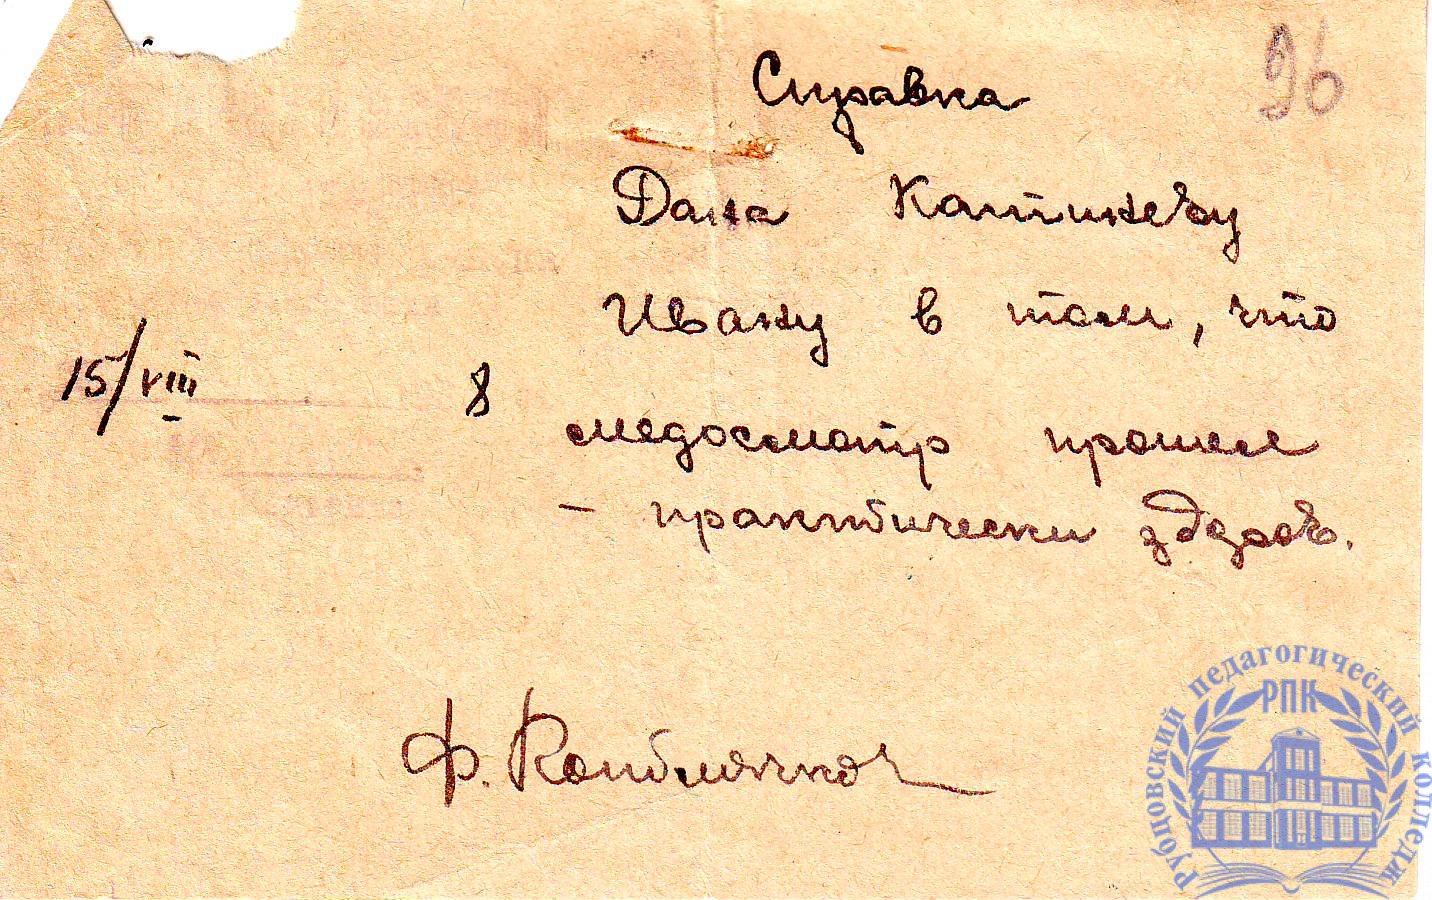 96
Справка
Дана Катиневу
Ивану в том, что
15/VIII
8
медосмотр прошел
– практически здоров.
Ф.
Рубцовский педагогический колледж
РПК